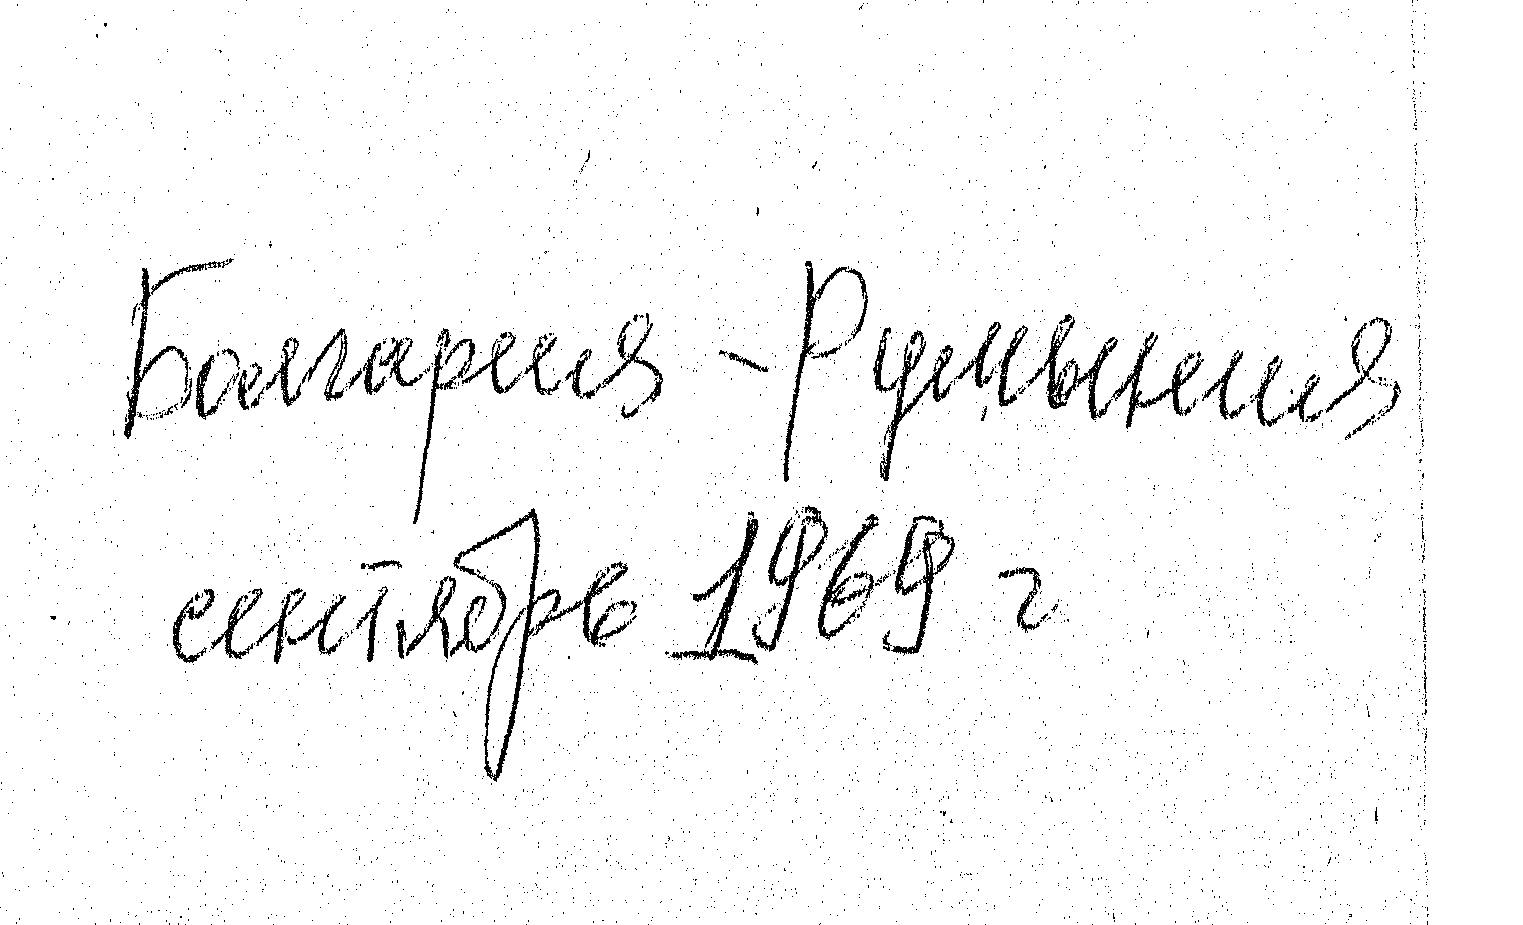 Болгария - Румыния
сентябрь 1969 г